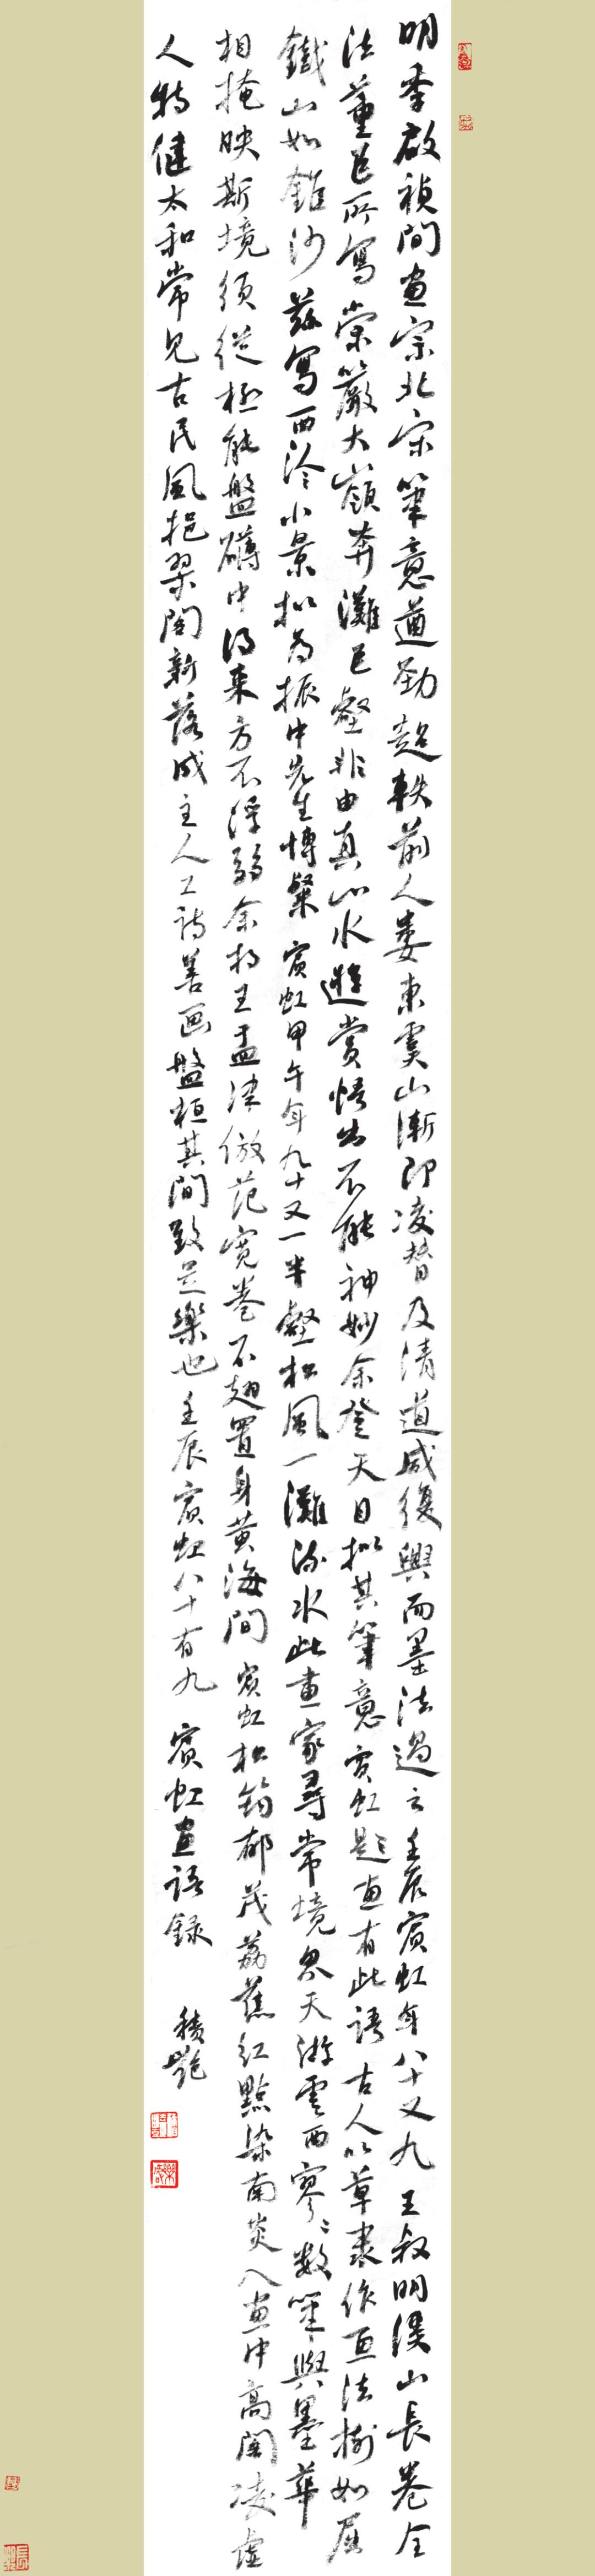 明季啟禎間畫宗北宋筆意遒勁超軼前人婁東虞山漸即凌替及清道咸復興而墨法過之壬辰賓虹年八十又九王叔明溪山長卷全
法董巨所寫崇巖大嶺奔灘巨壑非由真山水遊賞悟出不能神妙余登天目拟其筆意賓虹題畫有此語古人以草隸作畫法樹如屈
鐵山如錐沙茲寫西泠小景拟為振中先生博粲賓虹甲午年九十又一半壑松風一灘流水此畫家尋常境界天游雲西寥寥數筆與墨華
相掩映斯境須從極能盤礴中得來方不浮弱余於王孟津倣范寬卷不翅置身黄海間賓虹松筠郁茂荔蕉紅點染南炎入畫中高閣凌虛
人特健太和常見古民風挹翠閣新落成主人工詩善画盤桓其間致足樂也壬辰賓虹八十有九賓虹畫語録